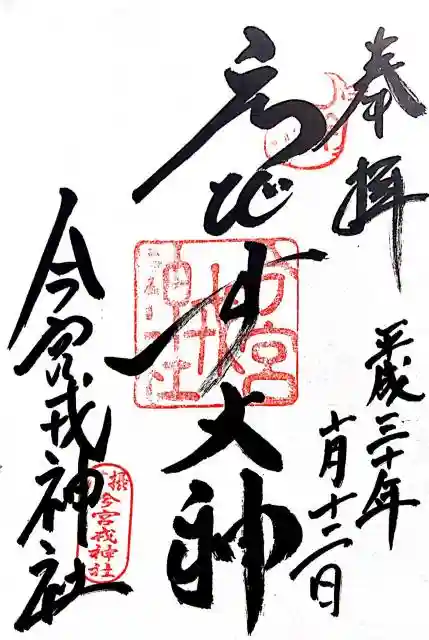 奉拝
平成三十年
十月十三日
ゑびす大神
今宮戎神社
今宮戎神社
摂 今宮戎神社